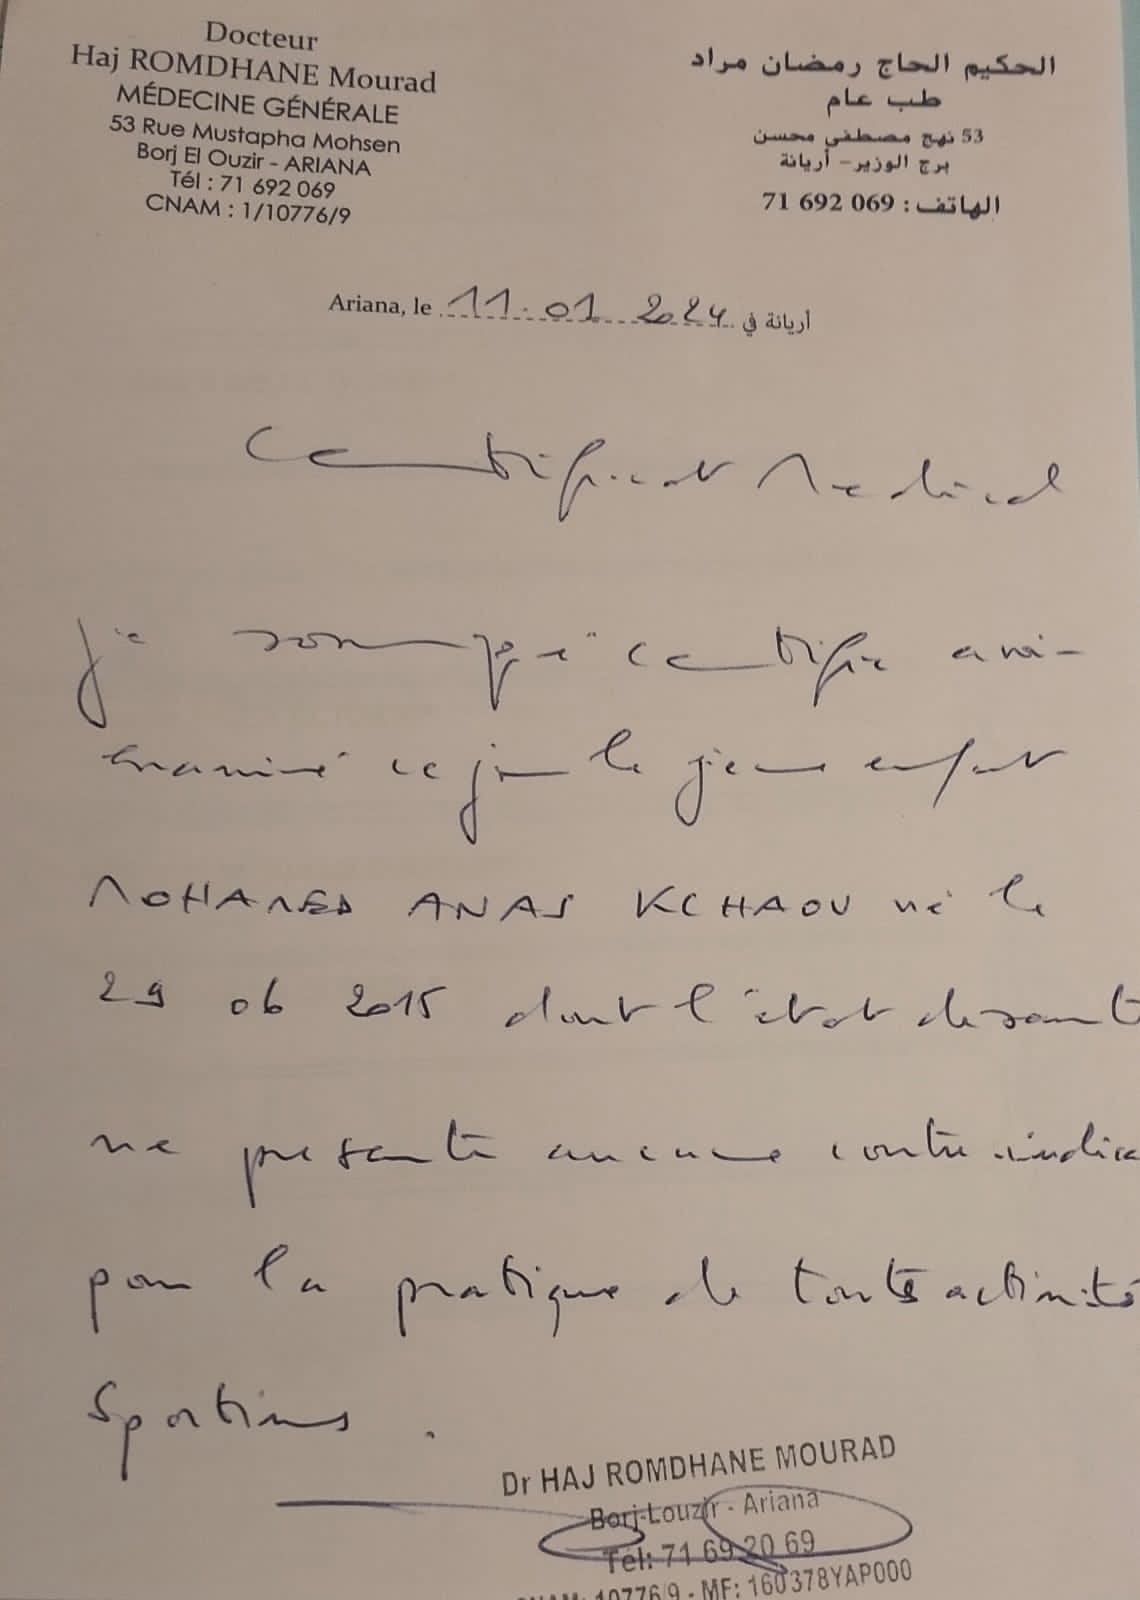 Docteur
Haj ROMDHANE Mourad
MÉDECINE GÉNÉRALE
53 Rue Mustapha Mohsen
Borj El Ouzir - ARIANA
Tél : 71 692 069
CNAM : 1/10776/9
الحكيم الحاج رمضان مراد
طب عام
53 نهج مصطفى محسن
برج الوزير - أريانة
الهاتف : 069 692 71
Ariana, le 11.01 2024 أريانة في
Certificat Medical
je soussigné certifie avoir
examiné ce jour le jeune enfant
MOHAMED ANAS KCHAOU né le
29 06 2015 dont l'état de sant
ne présente aucune contre indica
pour la pratique de toutes activités
Sportives .
Dr HAJ ROMDHANE MOURAD
Borj-Louzir - Ariana
Tél: 71 69 20 69
CNAM: 10776/9 - MF: 160378YAP000